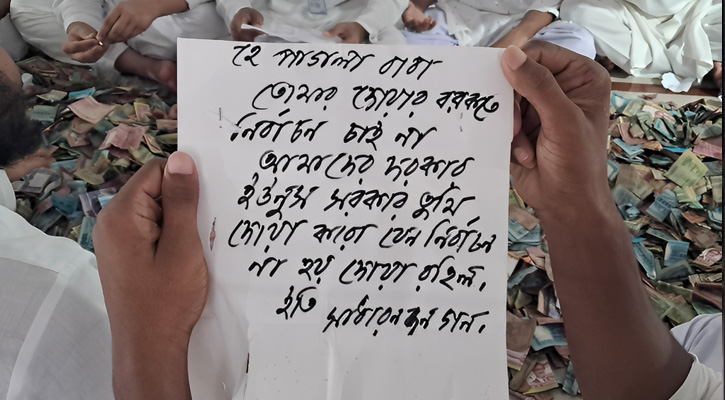 হে পাগলা বাবা
তোমার দোয়ার বরকতে
নির্বাচন চাই না
আমাদের দরকার
ইউনুস সরকার তুমি
দোয়া করো যেন নির্বাচন
না হয় দোয়া রহিল,
ইতি সাধারন জন গন,